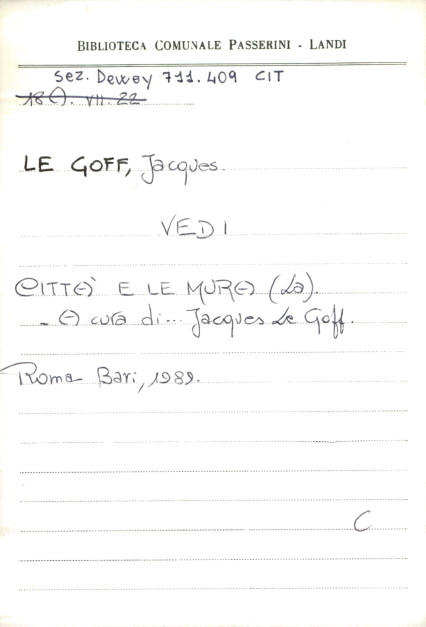 BIBLIOTECA COMUNALE PASSERINI - LANDI
sez. Dewey 711.409 CIT
18A. VII. 22
LE GOFF, Jacques.
VEDI
CITTA' E LE MURA (La).
- A cura di... Jacques Le Goff.
Roma Bari, 1989.
C